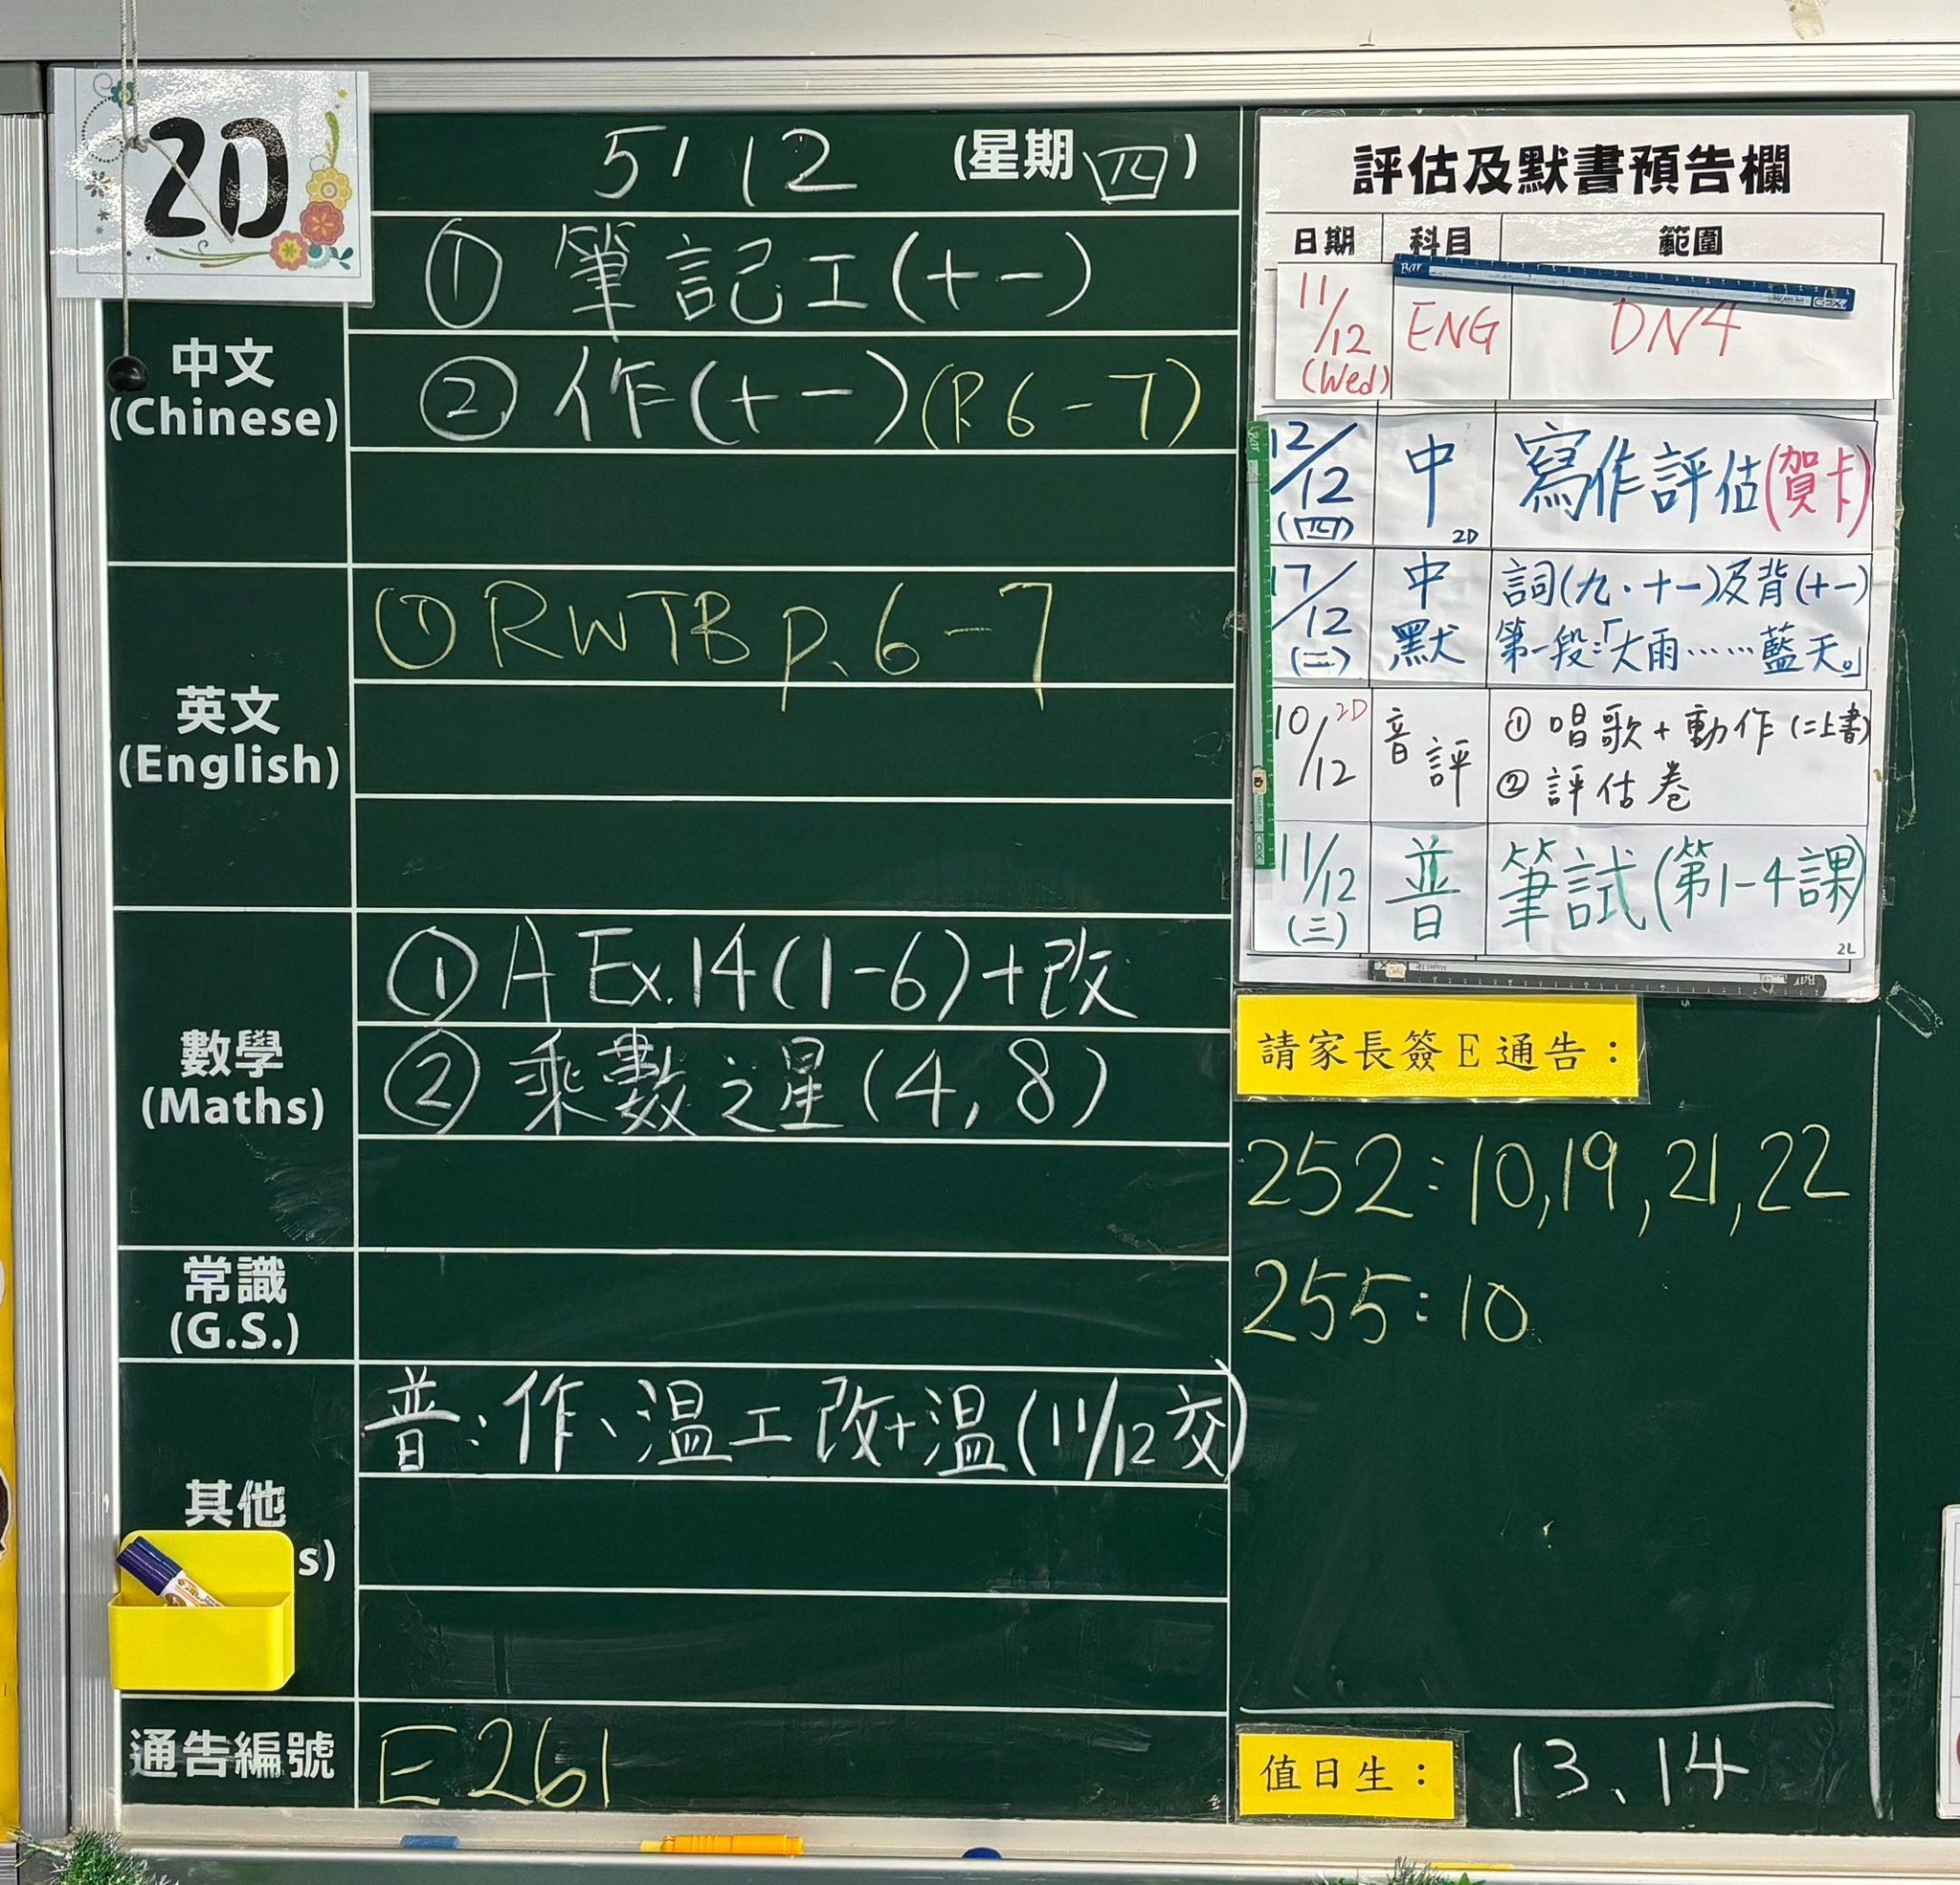 2D
5/12 (星期四)
中文
(Chinese)
① 筆記工(十一)
② 作(十一)(P.6-7)
英文
(English)
① RWTB p.6-7
數學
(Maths)
① A Ex.14(1-6)+改
② 乘數之星(4,8)
常識
(G.S.)
其他
s)
普:作、溫工改+溫(11/12交)
通告編號
E261
評估及默書預告欄
日期 科目 範圍
11/12 (Wed) ENG DN4
12/12 (四) 中 2D 寫作評估(賀卡)
17/12 (二) 中默 詞(九.十一)及背(十一)
第一段:「大雨……藍天。」
10/12 2D 音評 ① 唱歌+動作(二上書)
② 評估卷
11/12 (三) 普 筆試(第1-4課)
2L
請家長簽E通告:
252:10,19,21,22
255:10
值日生: 13、14